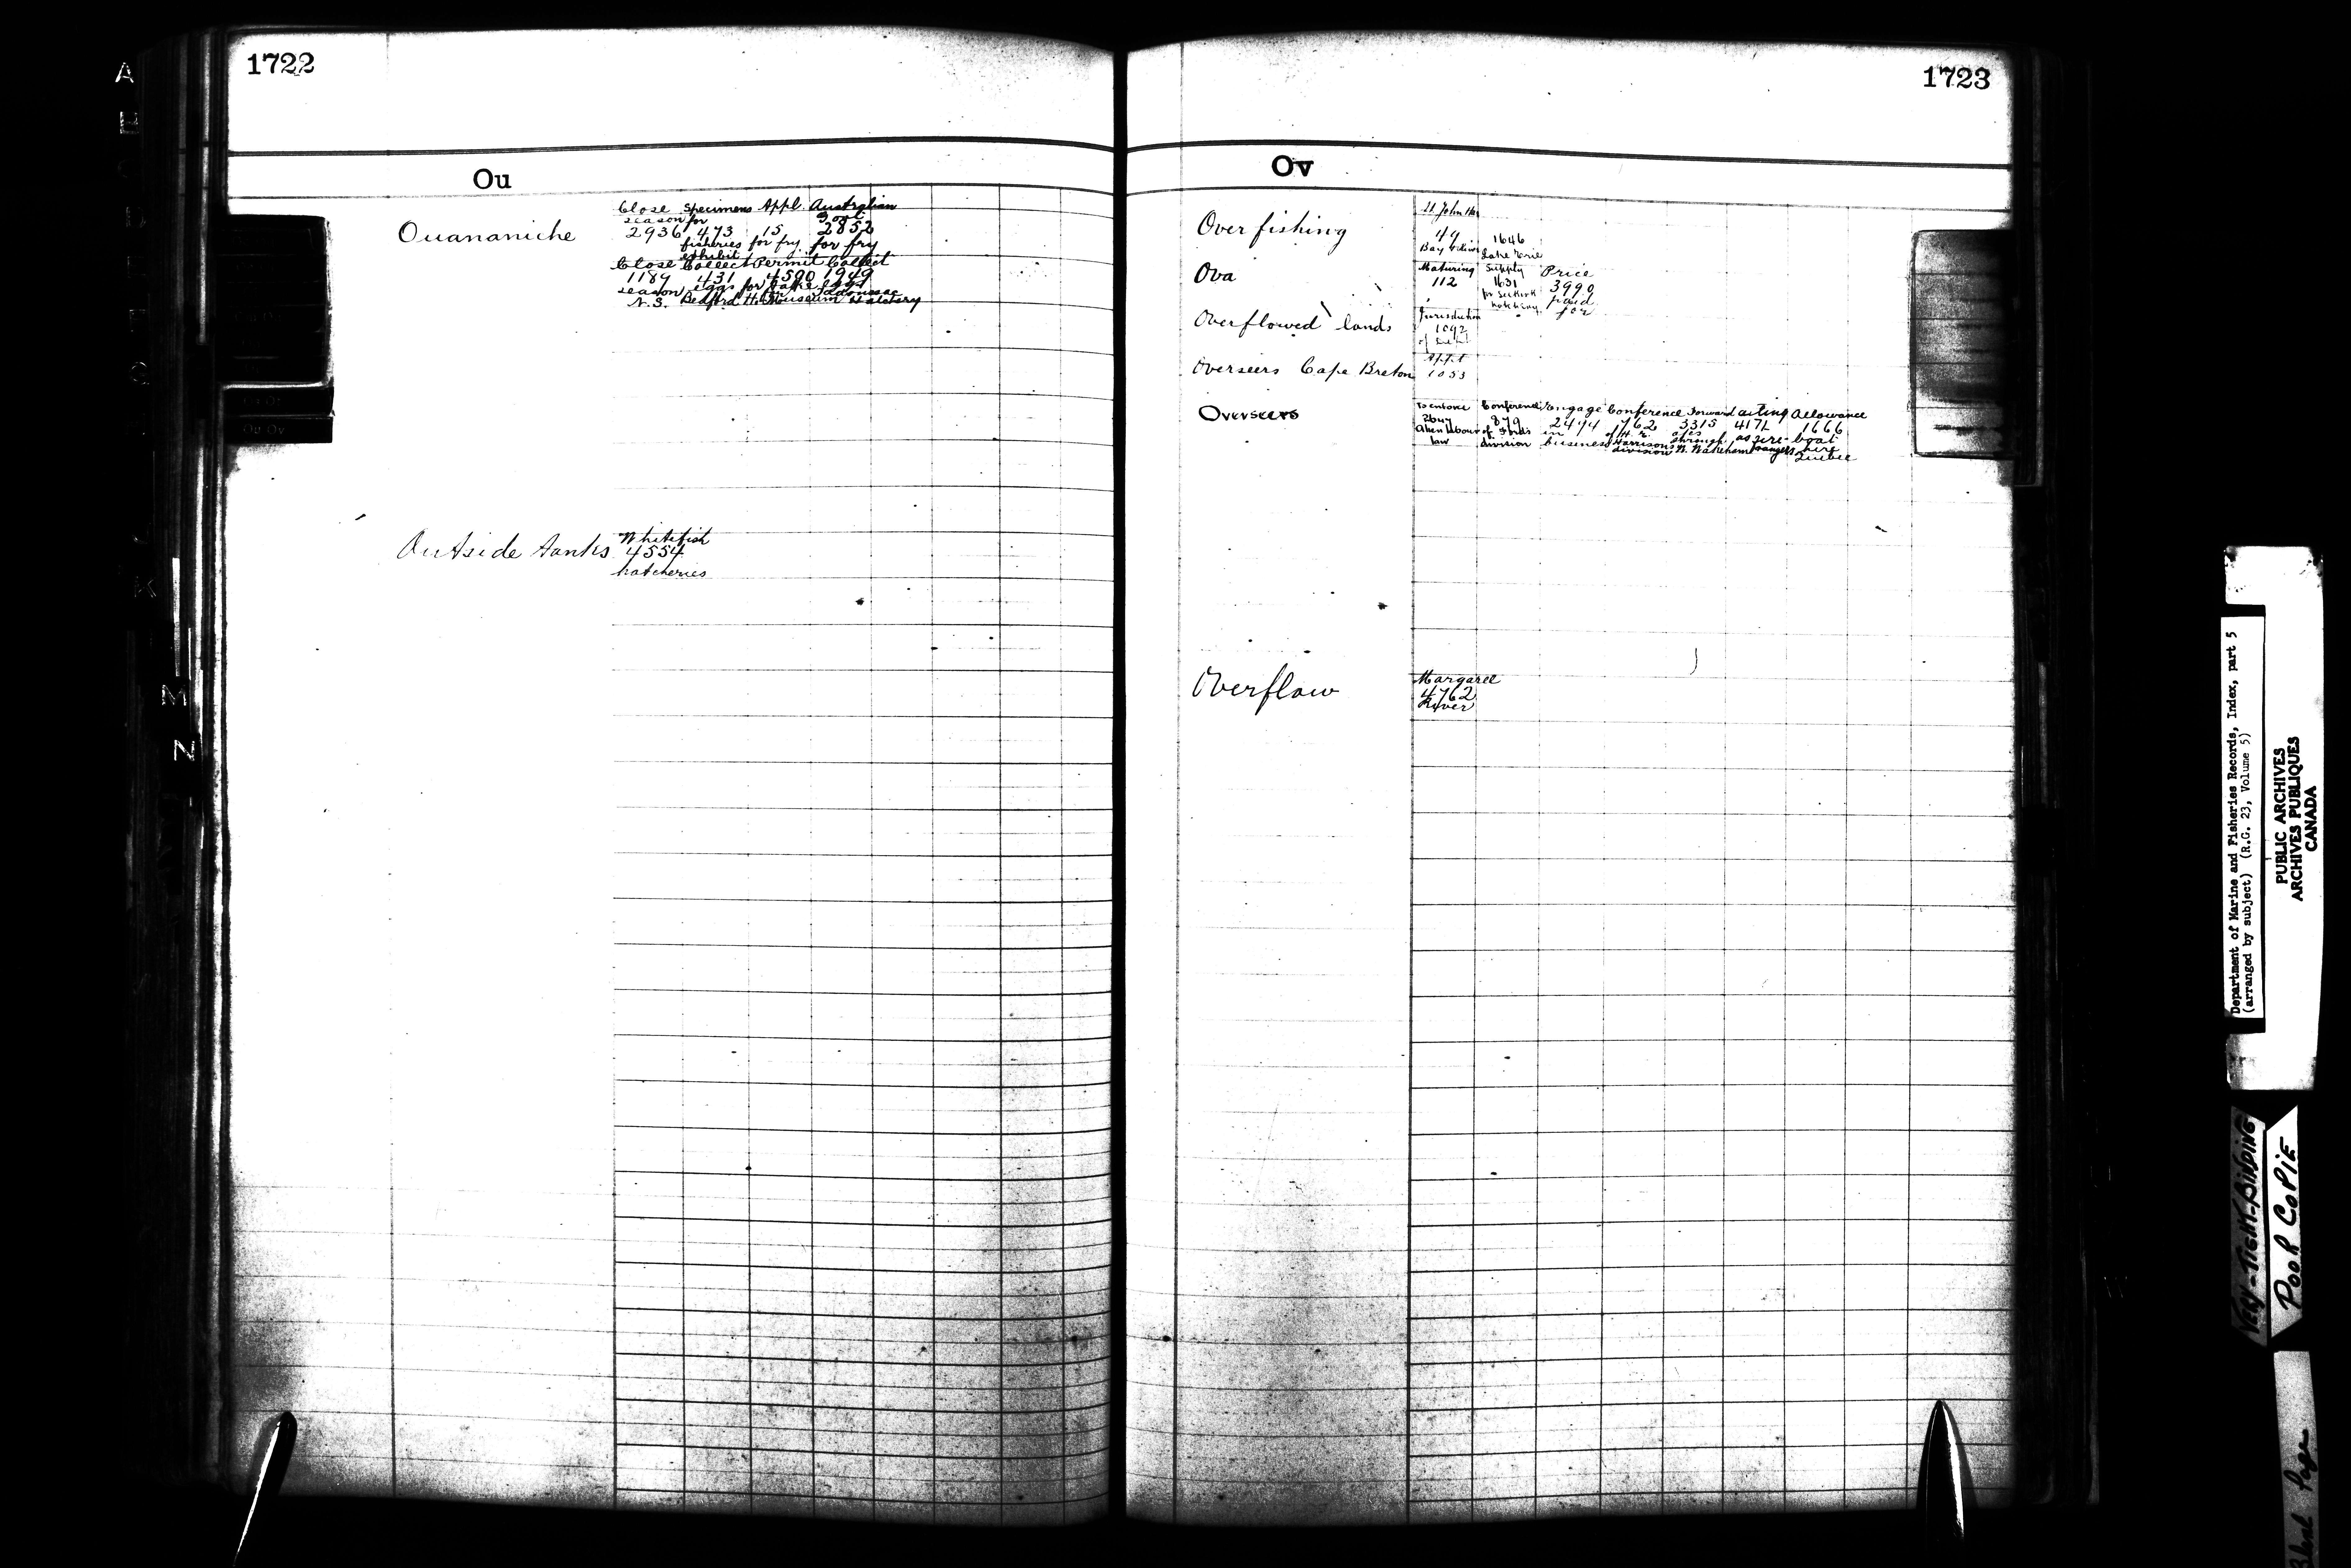 1722
Ou
Ouananiche
Close Specimens Appl. Australian
season for Govt
2936 473 15 2852
fisheries for fry for fry
exhibit
Close Collect Permit Collect
1189 431 4590 1949
season eggs for take eggs
N.S. Bedford H. Museum Tadoussac Hatchery
Outside tanks
Whitefish
4554
hatcheries
1723
Ov
Over fishing
St John Hbr
49 1646
Lake Erie
Ova
Maturing Supply Price
112 1631 3990
hatching paid
for
Overflowed lands
Jurisdiction
1092
Overseers Cape Breton
Appt
1053
Overseers
To enforce Conference Engage Conference Forward acting Allowance
879 2494 762 3315 4171 1666
Alien labour of Ford's in of H. as fire- boat
law division business Harrison's through rangers hire
division W. Wakeham Quebec
Overflow
Margaree
4762
River
Department of Marine and Fisheries Records, Index, part 5
(arranged by subject) (R.G. 23, Volume 5)
PUBLIC ARCHIVES
ARCHIVES PUBLIQUES
CANADA
VERY-TIGHT-BINDING
POOR COPIE
Page
A
K
M
N